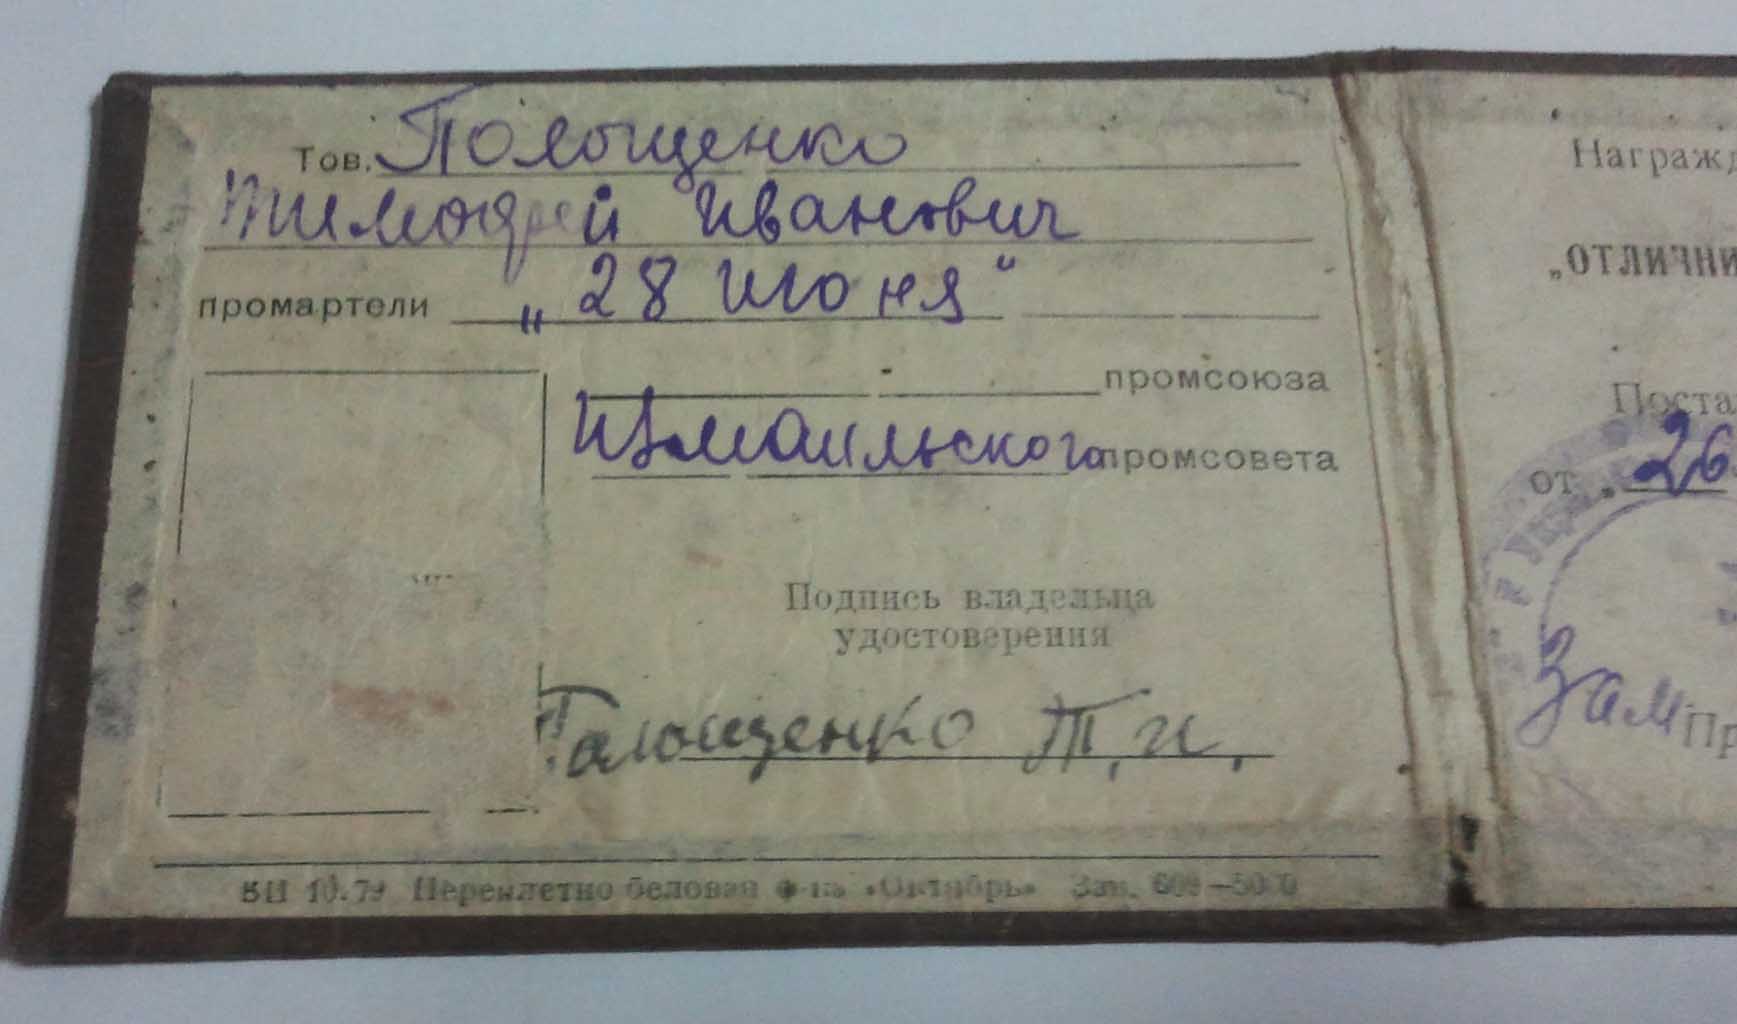 Тов. Полощенко
Тимофей Иванович
промартели „28 июня“
промсоюза
Измаильского промсовета
Подпись владельца
удостоверения
Полощенко Т. И.
БП 10.79 Переплетно беловая ф-ка «Октябрь» Зак.
Награжд
„ОТЛИЧНИ
Поста
от „26
Зам Пр